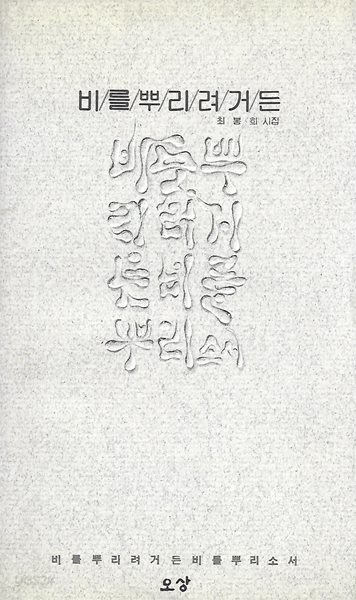 비/를/뿌/리/려/거/든
최 봉 희 시집
비를뿌
리려거
든비를
뿌리소서
비 를 뿌 리 려 거 든 비 를 뿌 리 소 서
오상